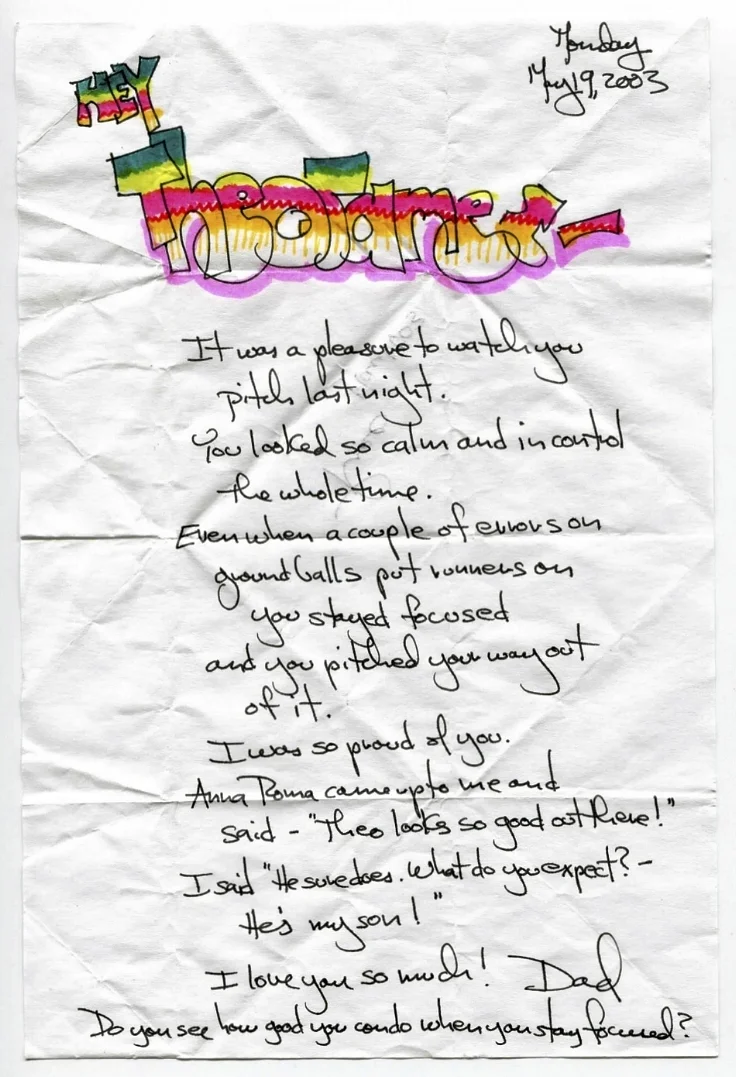 Monday
May 19, 2003
HEY
Theo James -
It was a pleasure to watch you
pitch last night.
You looked so calm and in control
the whole time.
Even when a couple of errors on
ground balls put runners on
you stayed focused
and you pitched your way out
of it.
I was so proud of you.
Anna Roma came up to me and
said - "Theo looks so good out there!"
I said "He sure does. What do you expect? -
He's my son!"
I love you so much! Dad
Do you see how good you can do when you stay focused?